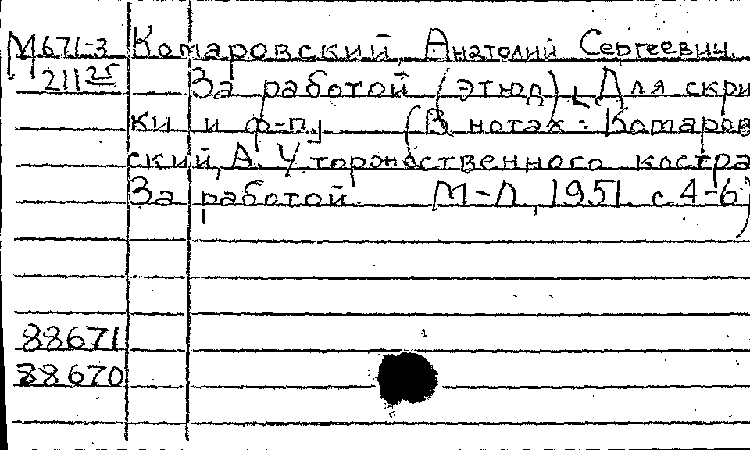 М671-3 Комаровский, Анатолий Сергеевич.
211 25 За работой (этюд). [Для скрип
ки и ф-п.] (В нотах: Комаров
ский, А. У торжественного костра
За работой М-Л, 1951. с. 4-6)
88671
88670